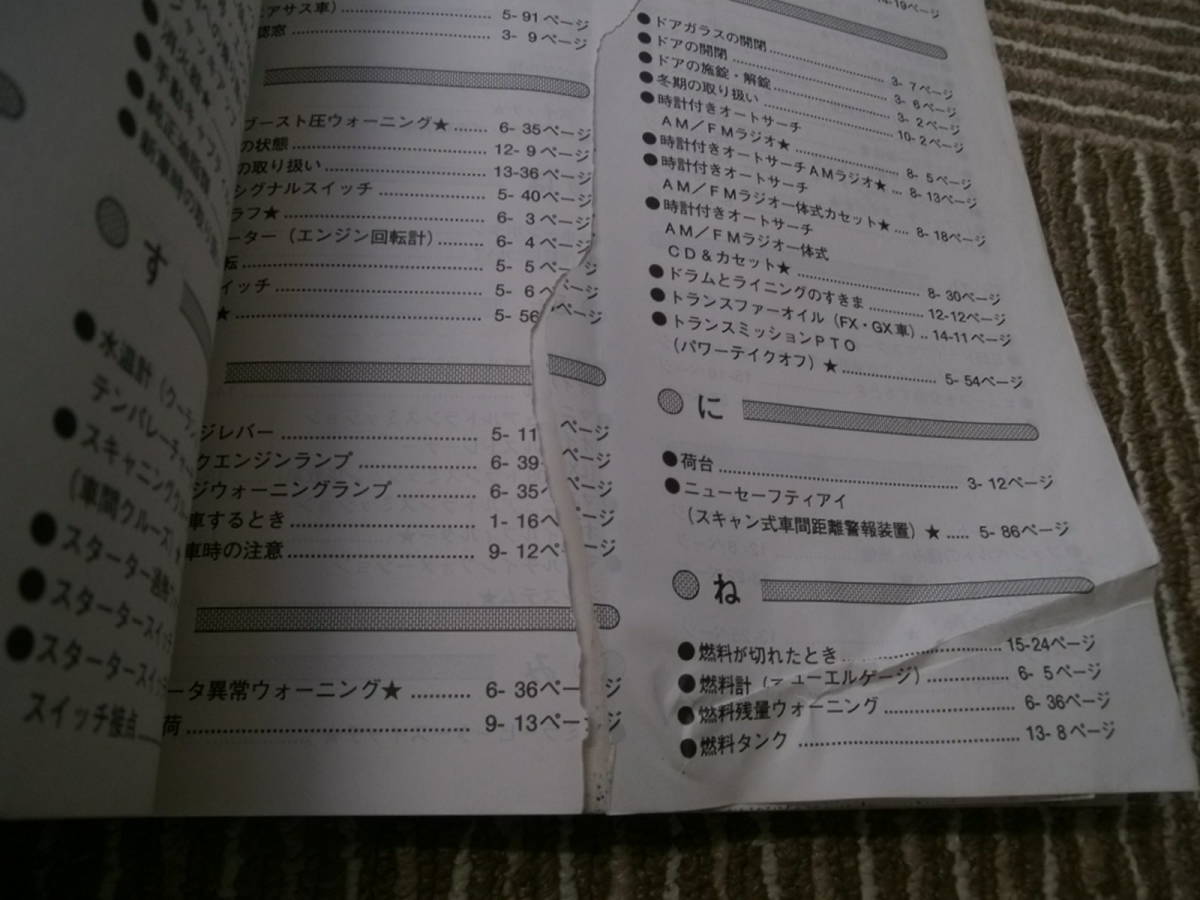 手動キャブチ
純正油脂類
新車時の取り扱
す
水温計（クーラン
テンパレーチャー
スキャニングク
（車間クルーズ
スターター過熱
スタータースイッチ
スタータースイッチ
スイッチ接点
アサス車） 5-91ページ
認窓 3- 9ページ
ブースト圧ウォーニング★ 6- 35ページ
の状態 12- 9ページ
の取り扱い 13-36ページ
シグナルスイッチ 5- 40ページ
ラフ★ 6- 3ページ
ーター（エンジン回転計） 6- 4ページ
転 5- 5ページ
イッチ 5- 6ページ
★ 5- 56ページ
ジレバー 5- 11ページ
クエンジンランプ 6- 39ページ
ジウォーニングランプ 6- 35ページ
車するとき 1- 16ページ
車時の注意 9- 12ページ
ータ異常ウォーニング★ 6- 36ページ
荷 9- 13ページ
14-19ページ
ドアガラスの開閉 3- 7ページ
ドアの開閉 3- 6ページ
ドアの施錠・解錠 3- 2ページ
冬期の取り扱い 10- 2ページ
時計付きオートサーチ
AM／FMラジオ★ 8- 5ページ
時計付きオートサーチAMラジオ★ 8- 13ページ
時計付きオートサーチ
AM／FMラジオ一体式カセット★ 8- 18ページ
時計付きオートサーチ
AM／FMラジオ一体式
CD＆カセット★ 8- 30ページ
ドラムとライニングのすきま 12-12ページ
トランスファーオイル（FX・GX車） 14-11ページ
トランスミッションPTO
（パワーテイクオフ）★ 5- 54ページ
に
荷台 3- 12ページ
ニューセーフティアイ
（スキャン式車間距離警報装置）★ 5- 86ページ
ね
燃料が切れたとき 15-24ページ
燃料計（フューエルゲージ） 6- 5ページ
燃料残量ウォーニング 6- 36ページ
燃料タンク 13- 8ページ